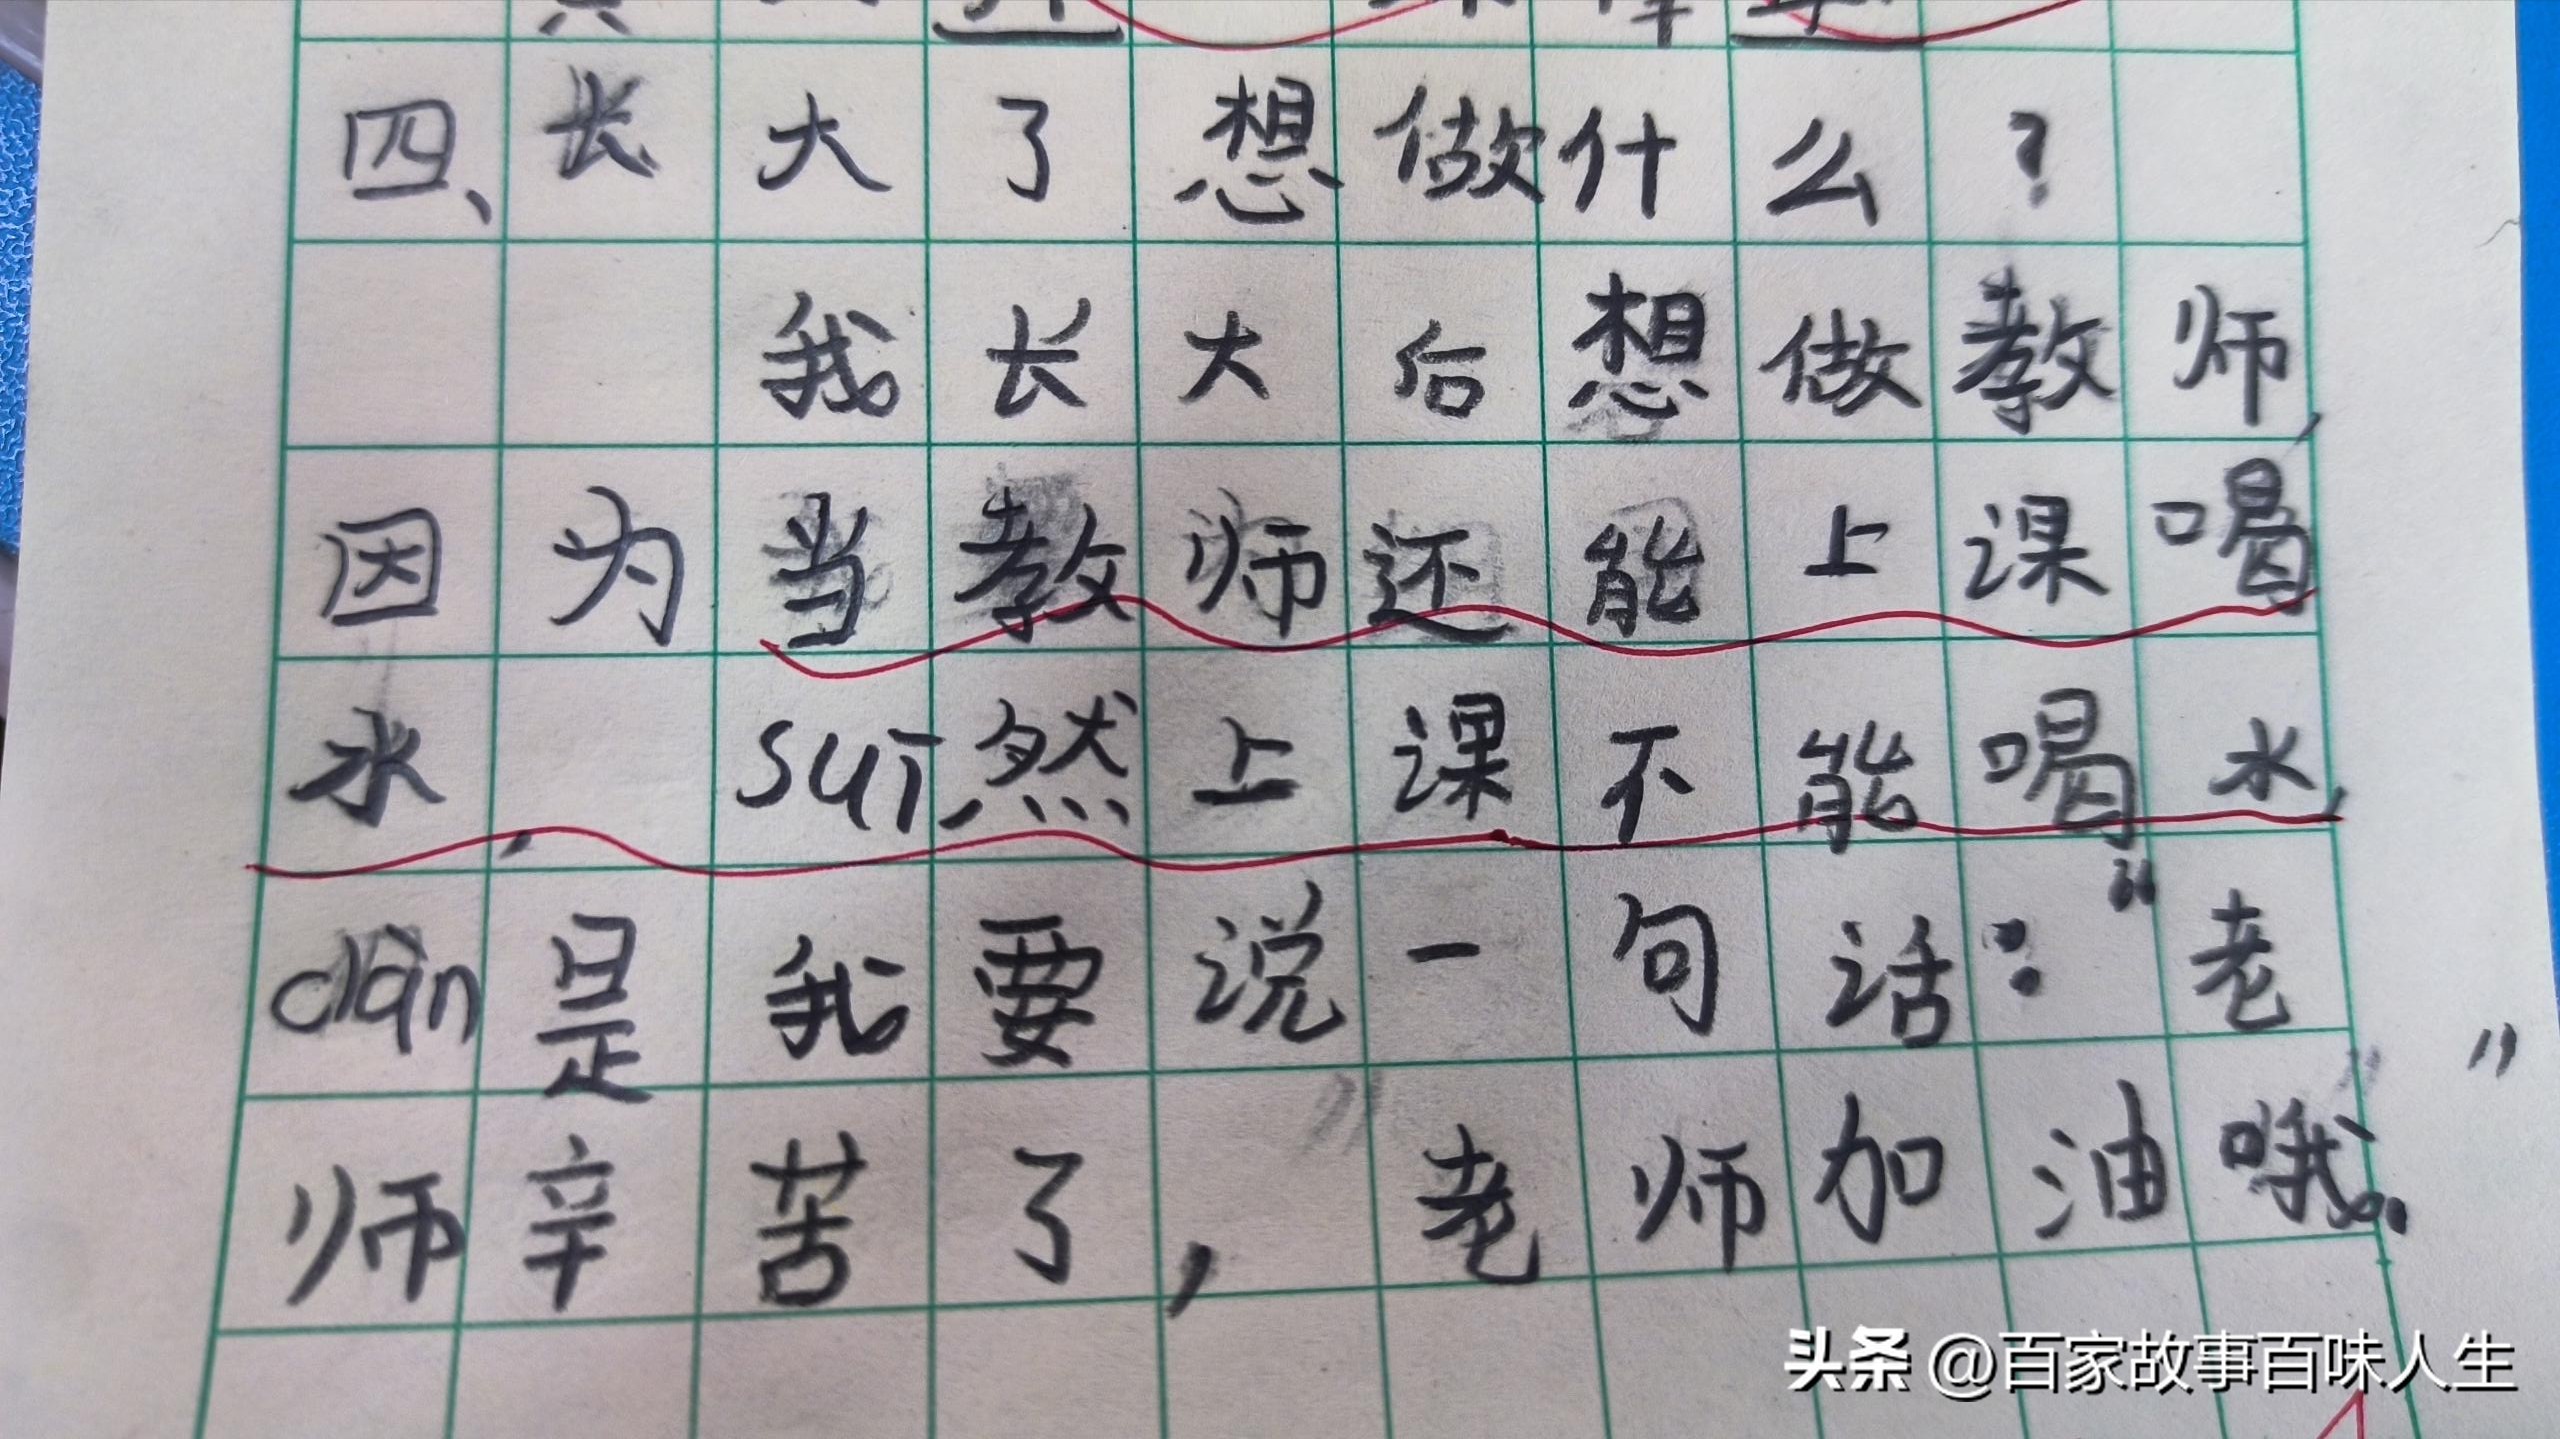 四、长大了想做什么?
我长大后想做教师,
因为当教师还能上课喝
水, suī然上课不能喝水,
dàn是我要说一句话:“老
师辛苦了,老师加油哦。”
头条 @百家故事百味人生